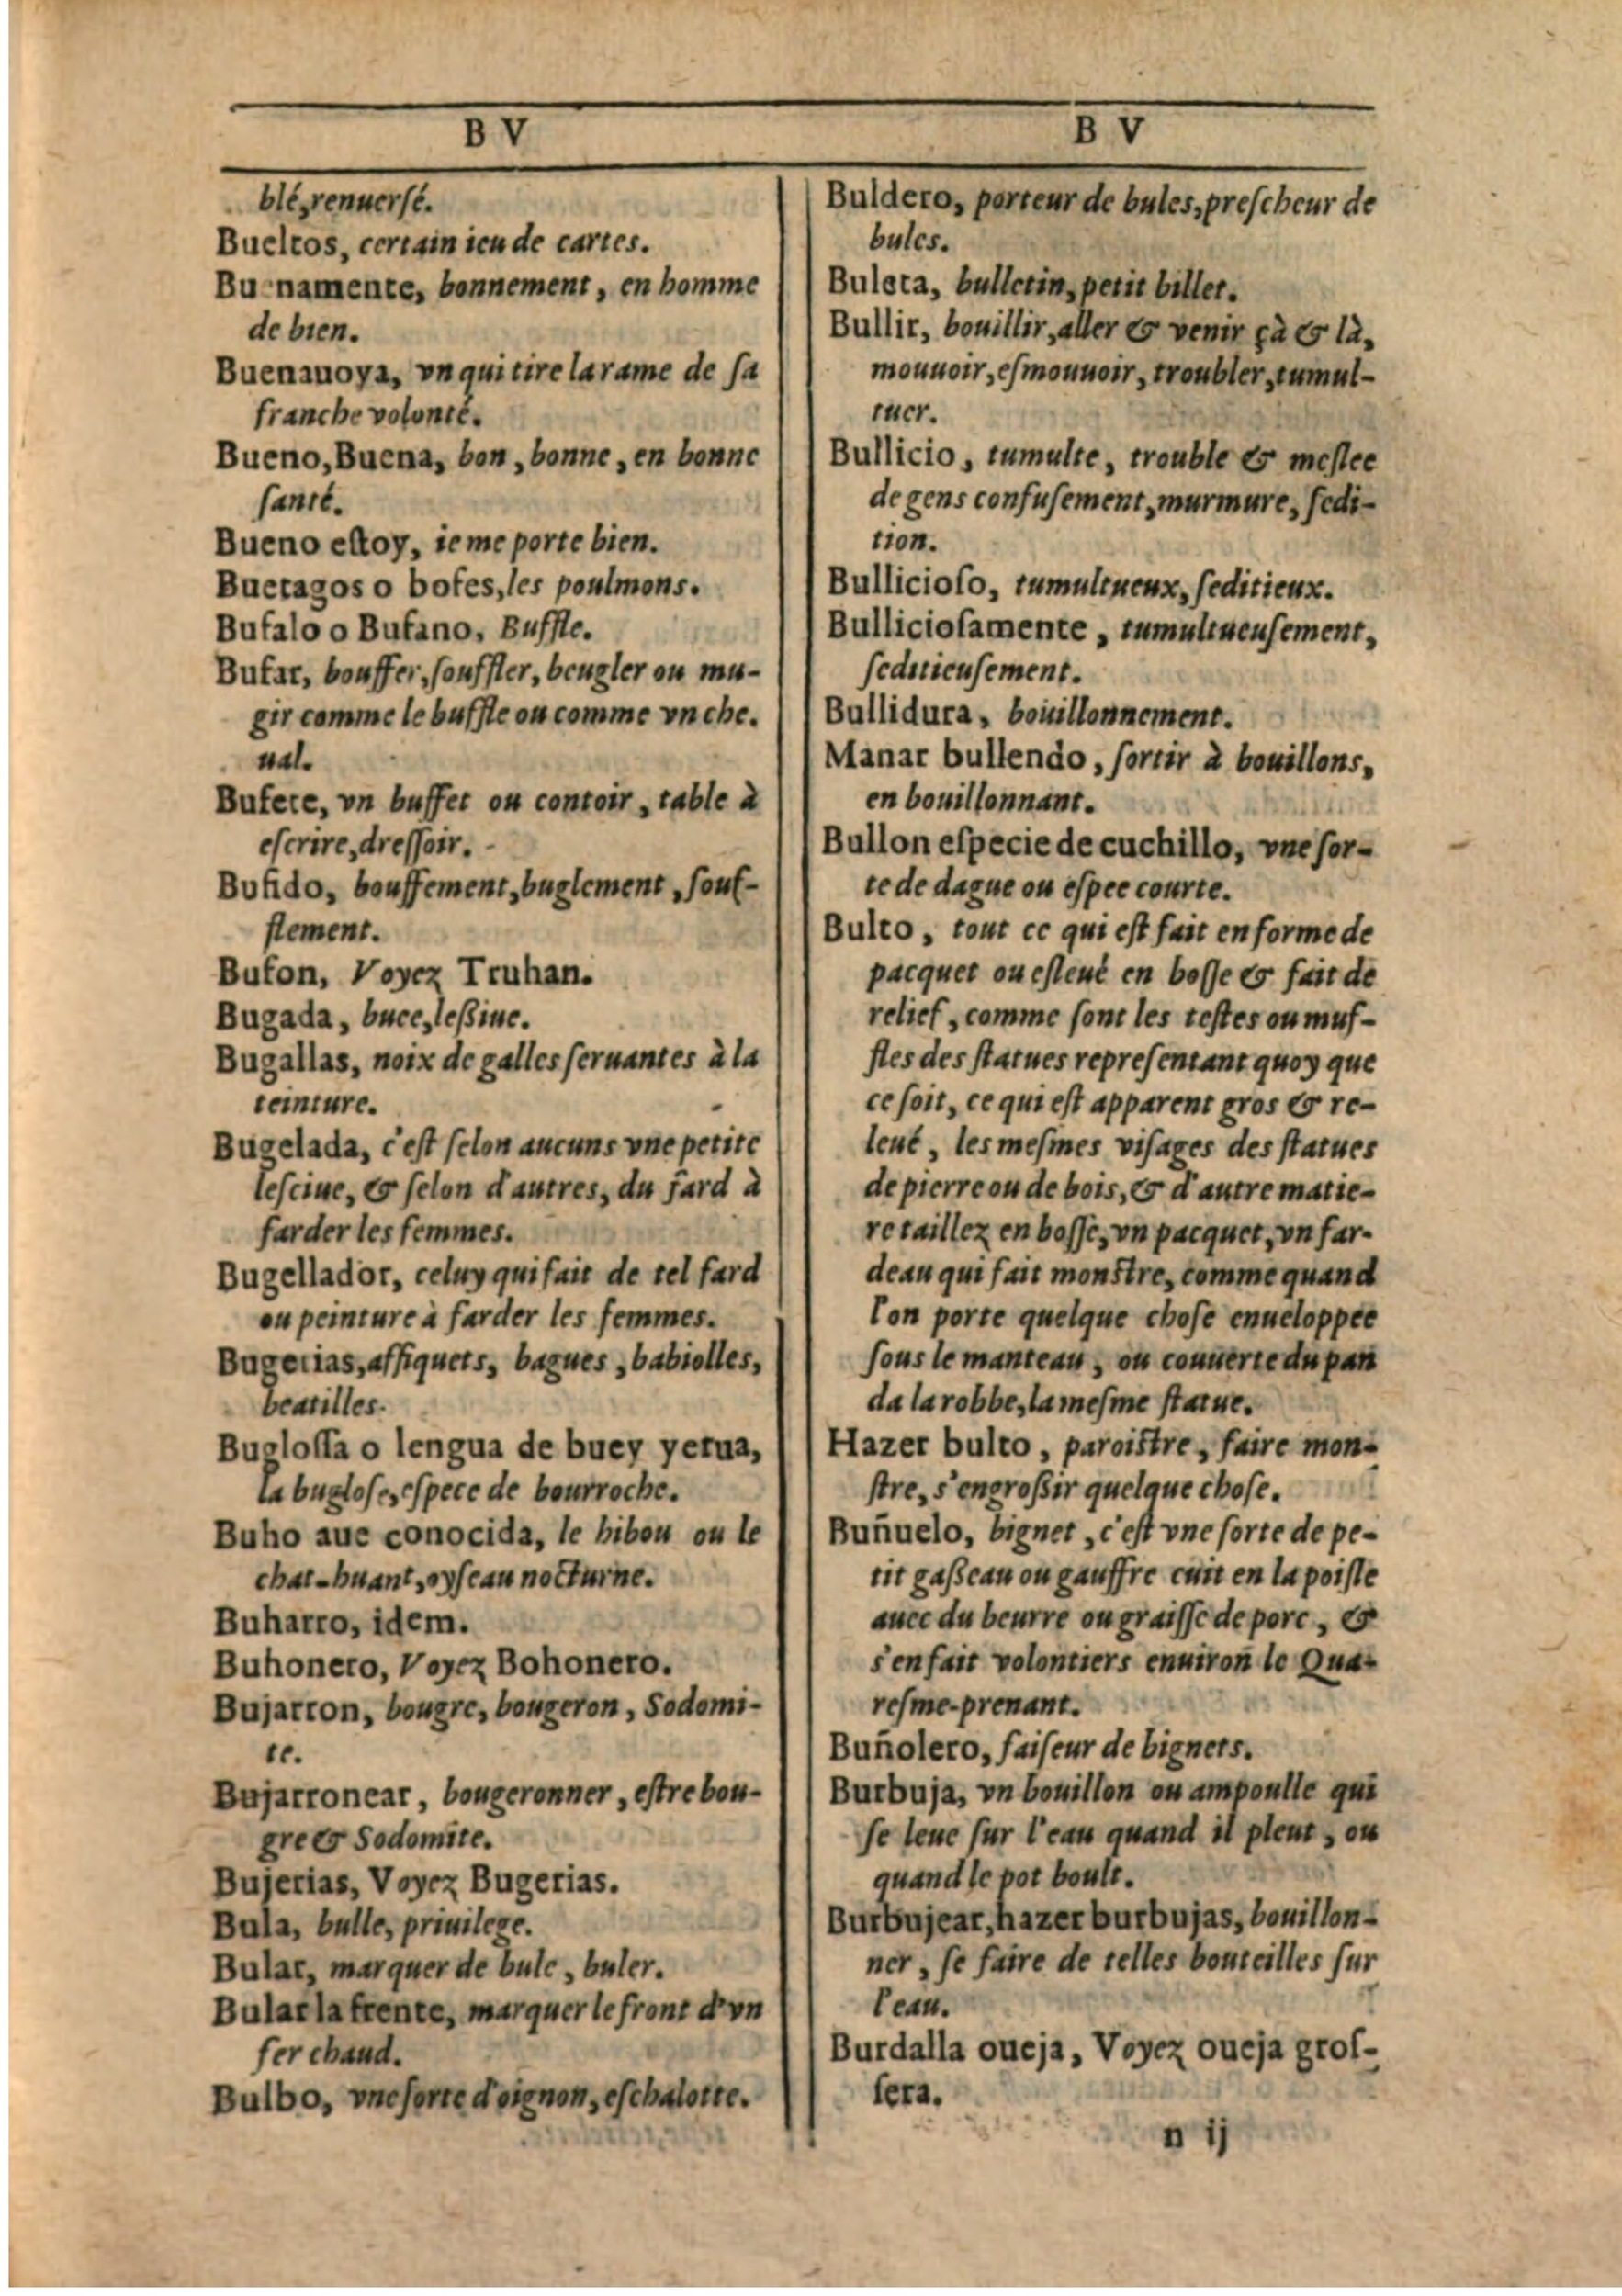 B V
blé, renuersé.
Bueltos, certain ieu de cartes.
Bu namente, bonnement, en homme
de bien.
Buenauoya, vn qui tire la rame de sa
franche volonté.
Bueno, Buena, bon, bonne, en bonne
santé.
Bueno estoy, ie me porte bien.
Buetagos o bofes, les poulmons.
Bufalo o Bufano, Buffle.
Bufar, bouffer, souffler, beugler ou mu-
gir comme le buffle ou comme vn che.
ual.
Bufete, vn buffet ou contoir, table à
escrire, dressoir.
Bufido, bouffement, buglement, souf-
flement.
Bufon, Voyez Truhan.
Bugada, buee, leßiue.
Bugallas, noix de galles seruantes à la
teinture.
Bugelada, c'est selon aucuns vne petite
lesciue, & selon d'autres, du fard à
farder les femmes.
Bugellador, celuy qui fait de tel fard
ou peinture à farder les femmes.
Bugerias, affiquets, bagues, babiolles,
beatilles.
Buglossa o lengua de buey yerua,
la buglose, espece de bourroche.
Buho aue conocida, le hibou ou le
chat-huant, oyseau nocturne.
Buharro, idem.
Buhonero, Voyez Bohonero.
Bujarron, bougre, bougeron, Sodomi-
te.
Bujarronear, bougeronner, estre bou-
gre & Sodomite.
Bujerias, Voyez Bugerias.
Bula, bulle, priuilege.
Bular, marquer de bule, buler.
Bular la frente, marquer le front d'vn
fer chaud.
Bulbo, vne sorte d'oignon, eschalotte.
B V
Buldero, porteur de bules, prescheur de
bules.
Buleta, bulletin, petit billet.
Bullir, bouillir, aller & venir çà & là,
mouuoir, esmouuoir, troubler, tumul-
tuer.
Bullicio, tumulte, trouble & meslee
de gens confusement, murmure, sedi-
tion.
Bullicioso, tumultueux, seditieux.
Bulliciosamente, tumultueusement,
seditieusement.
Bullidura, bouillonnement.
Manar bullendo, sortir à bouillons,
en bouillonnant.
Bullon especie de cuchillo, vne sor-
te de dague ou espee courte.
Bulto, tout ce qui est fait en forme de
pacquet ou esleué en bosse & fait de
relief, comme sont les testes ou muf-
fles des statues representant quoy que
ce soit, ce qui est apparent gros & re-
leué, les mesmes visages des statues
de pierre ou de bois, & d'autre matie-
re taillez en bosse, vn pacquet, vn far-
deau qui fait monstre, comme quand
l'on porte quelque chose enueloppee
sous le manteau, ou couuerte du pan
da la robbe, la mesme statue.
Hazer bulto, paroistre, faire mon-
stre, s'engroßir quelque chose.
Buñuelo, bignet, c'est vne sorte de pe-
tit gaßeau ou gauffre cuit en la poisle
auec du beurre ou graisse de porc, &
s'en fait volontiers enuiron le Qua-
resme-prenant.
Buñolero, faiseur de bignets.
Burbuja, vn bouillon ou ampoulle qui
se leue sur l'eau quand il pleut, ou
quand le pot boult.
Burbujear, hazer burbujas, bouillon-
ner, se faire de telles bouteilles sur
l'eau.
Burdalla oueja, Voyez oueja gros-
sera.
n ij